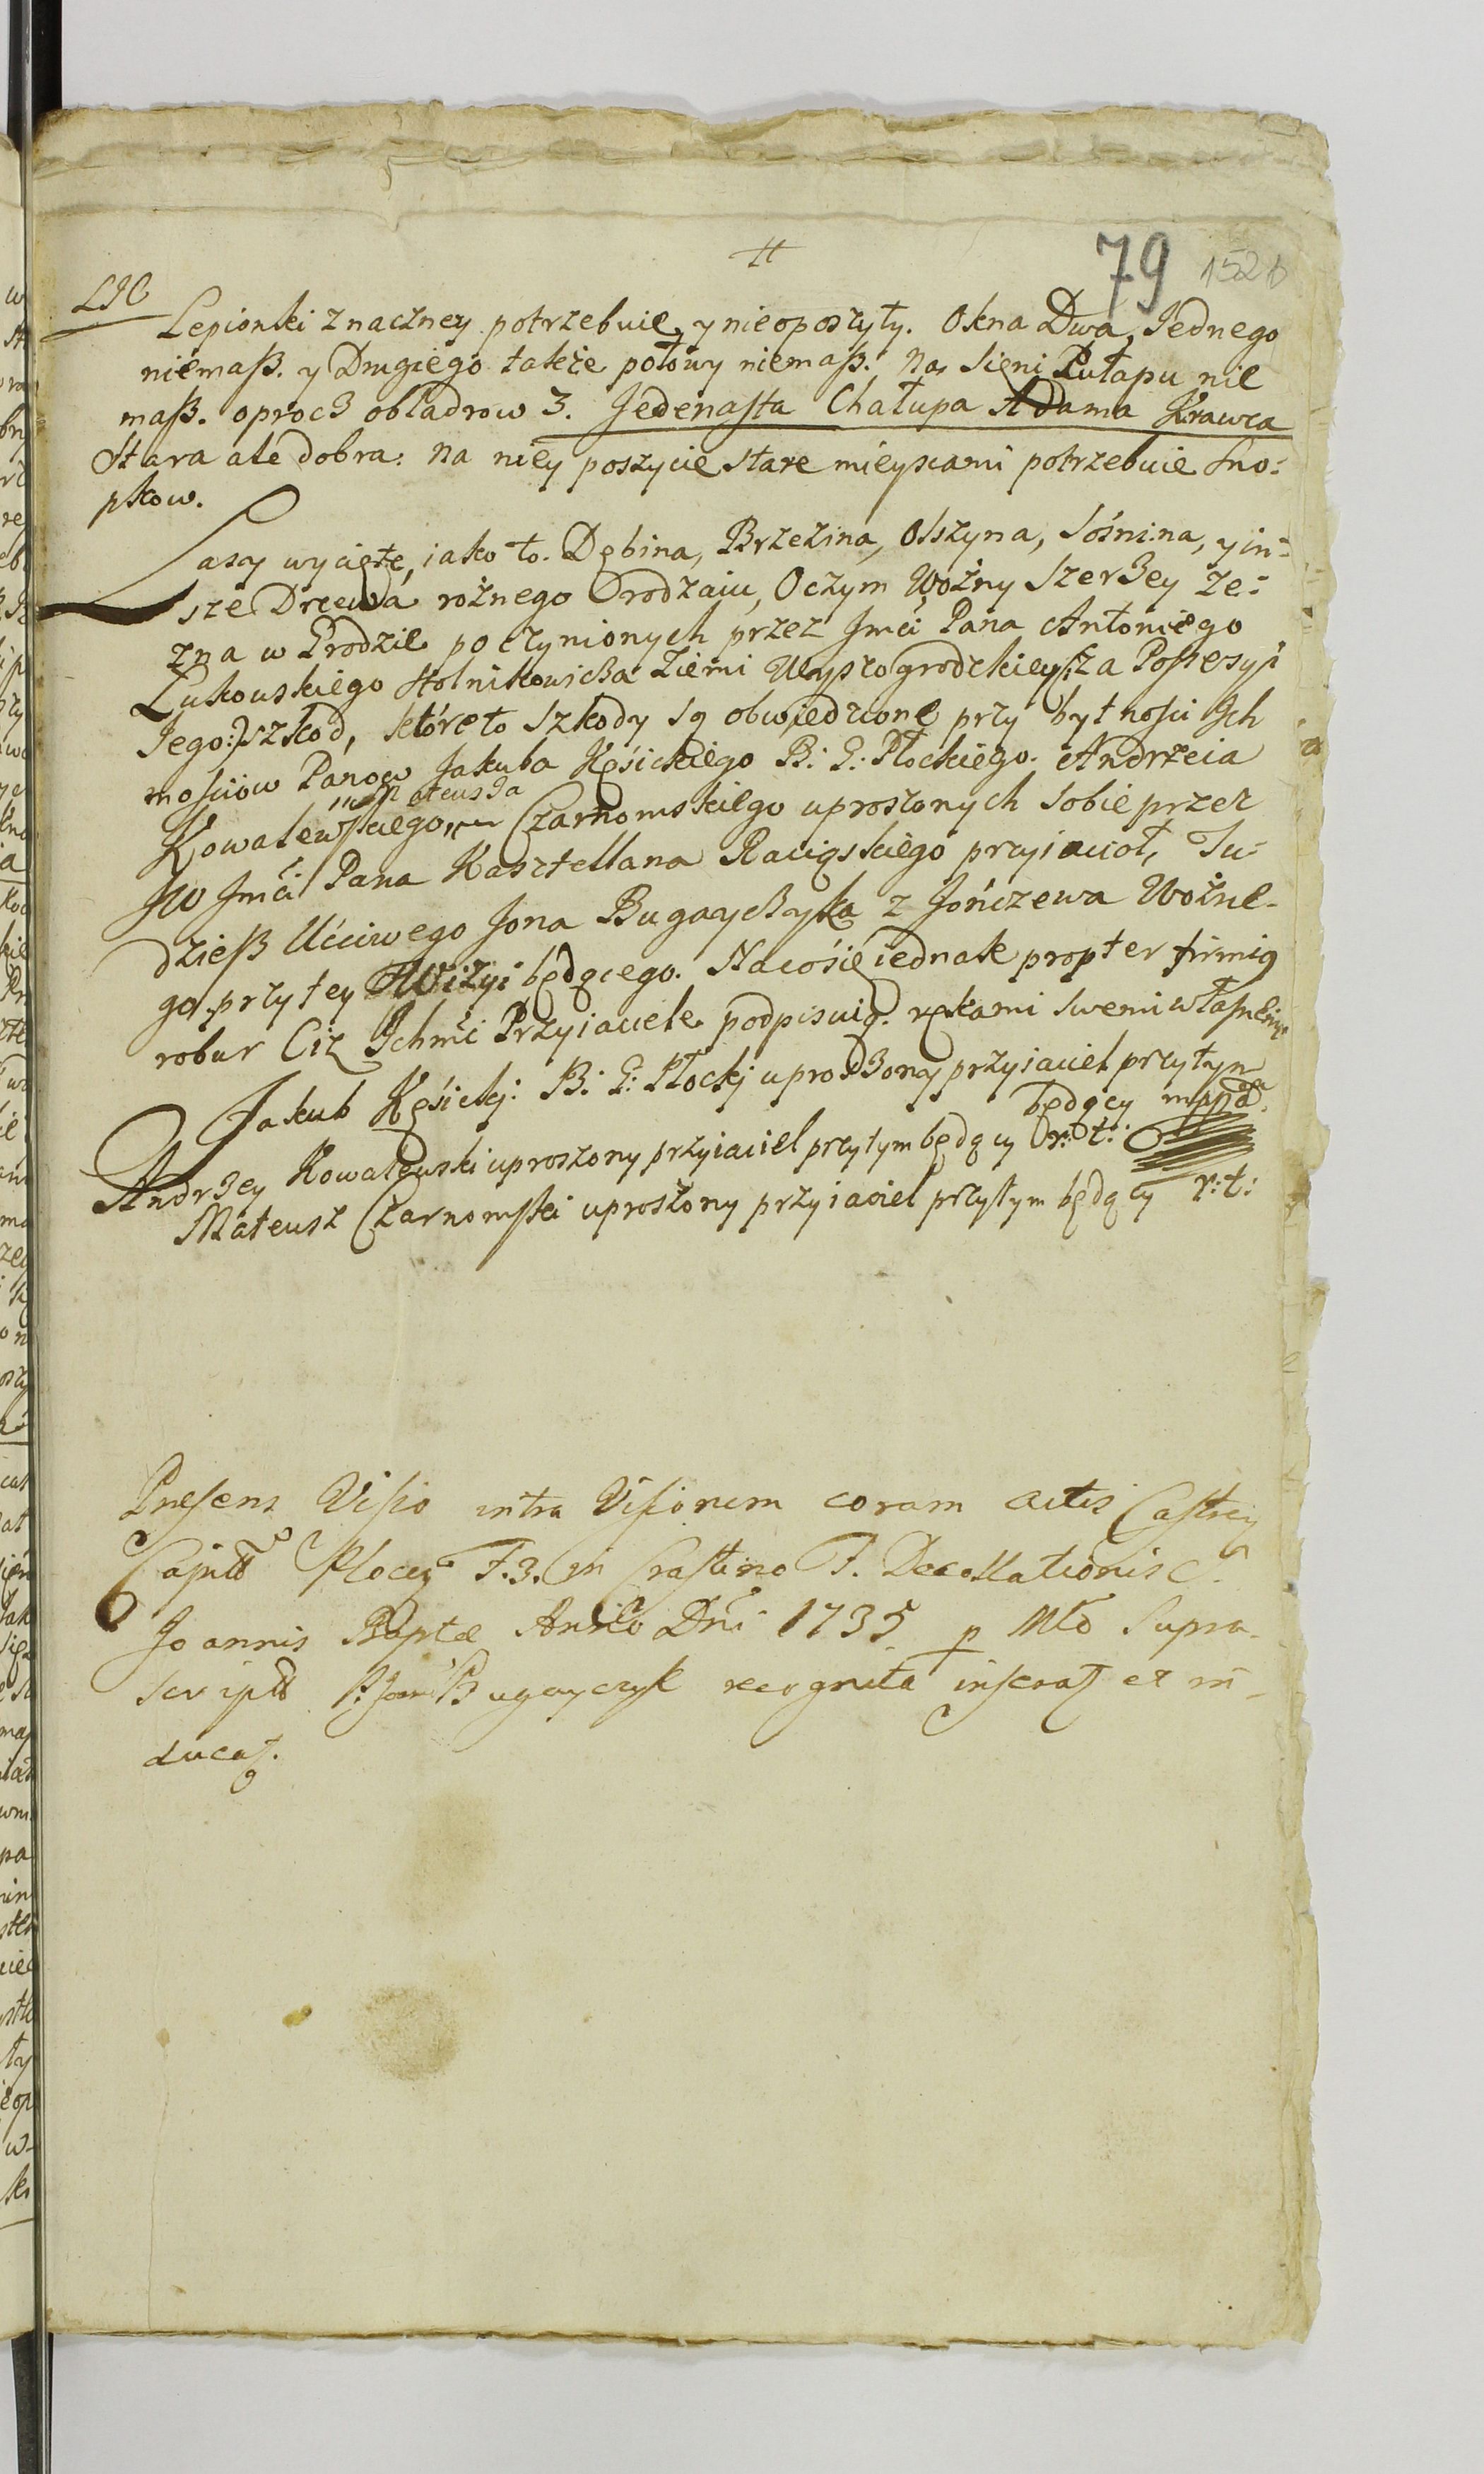 79 152b
LIC
Lepionki znaczney potrzebuie, y nieoposzyty. Okna Dwa, Jednego
niemaß. y Drugiego także połowy niemaß. Na Sieni Pułapu nie
maß. oprocz obladrow 3. Jedenasta Chałupa Adama Krawca
Stara ale dobra. na niey poszycie stare mieyscami potrzebuie sno-
pkow.
Lasy wycięte, iako to. Dębina, Brzezina, Olszyna, Sośnina, y in-
sze Drzewa rożnego rodzaiu, Oczym Woźny Szerzey ze-
zna w Grodzie poczynionych przez Jmći Pana Antoniego
Łukowskiego Stolnikowicza Ziemi Wyszogrodzkiey (:za Possesyi
Jego:) szkod, ktore to szkody są obwiedzione przy bytności Ich
mościow Panow Jakuba Kęsickiego B: G: Płockiego. Andrzeia
Kowalewskiego, Mateusza Czarnomskiego uproszonych sobie przez
JW Jmći Pana Kasztellana Raciąskiego przyiacioł, Tu-
dzieß Ućciwego Jona Bugayczyka z Jończewa Woźne-
go przy tey Wizyi będącego. Na co się iednak propter firmius
robur Ciż Ichmći Przyiaciele podpisuią rękami swemi własnemi
Jakub Kęsickj B: G: Płockj uproszony przyiaciel przytym
będący mppa
Andrzey Kowalewski uproszony przyiaciel przytym będący r: t:
Mateusz Czarnomski uproszony przyiaciel przytym będący r: t:
Presens Visio intra Visionem coram actis Castren
Capitl Plocen F. 3. in Crastino F. Decollationis S.
Joannis Bapta Anno Dni 1735 p Mld Supra-
script Bugayczyk recognita inserat et in-
ducat.